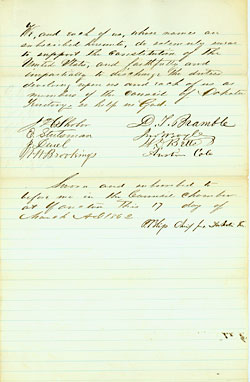 We, and each of us, whose names are
subscribed hereunto, do solemnly swear
to support the Constitution of the
United States, and faithfully and
impartially to discharge the duties
devolving upon us and each of us as
members of the Council of Dakota
Territory so help us God.
J H Shober D. T. Bramble
E Stutsman
J. Shaw Gregory
W W Brookings Austin Cole
Sworn and subscribed to
before me in the Council Chamber
at Yancton This 17 day of
March A.D. 1862
P. Bliss Chief Jus. Dakota Ter